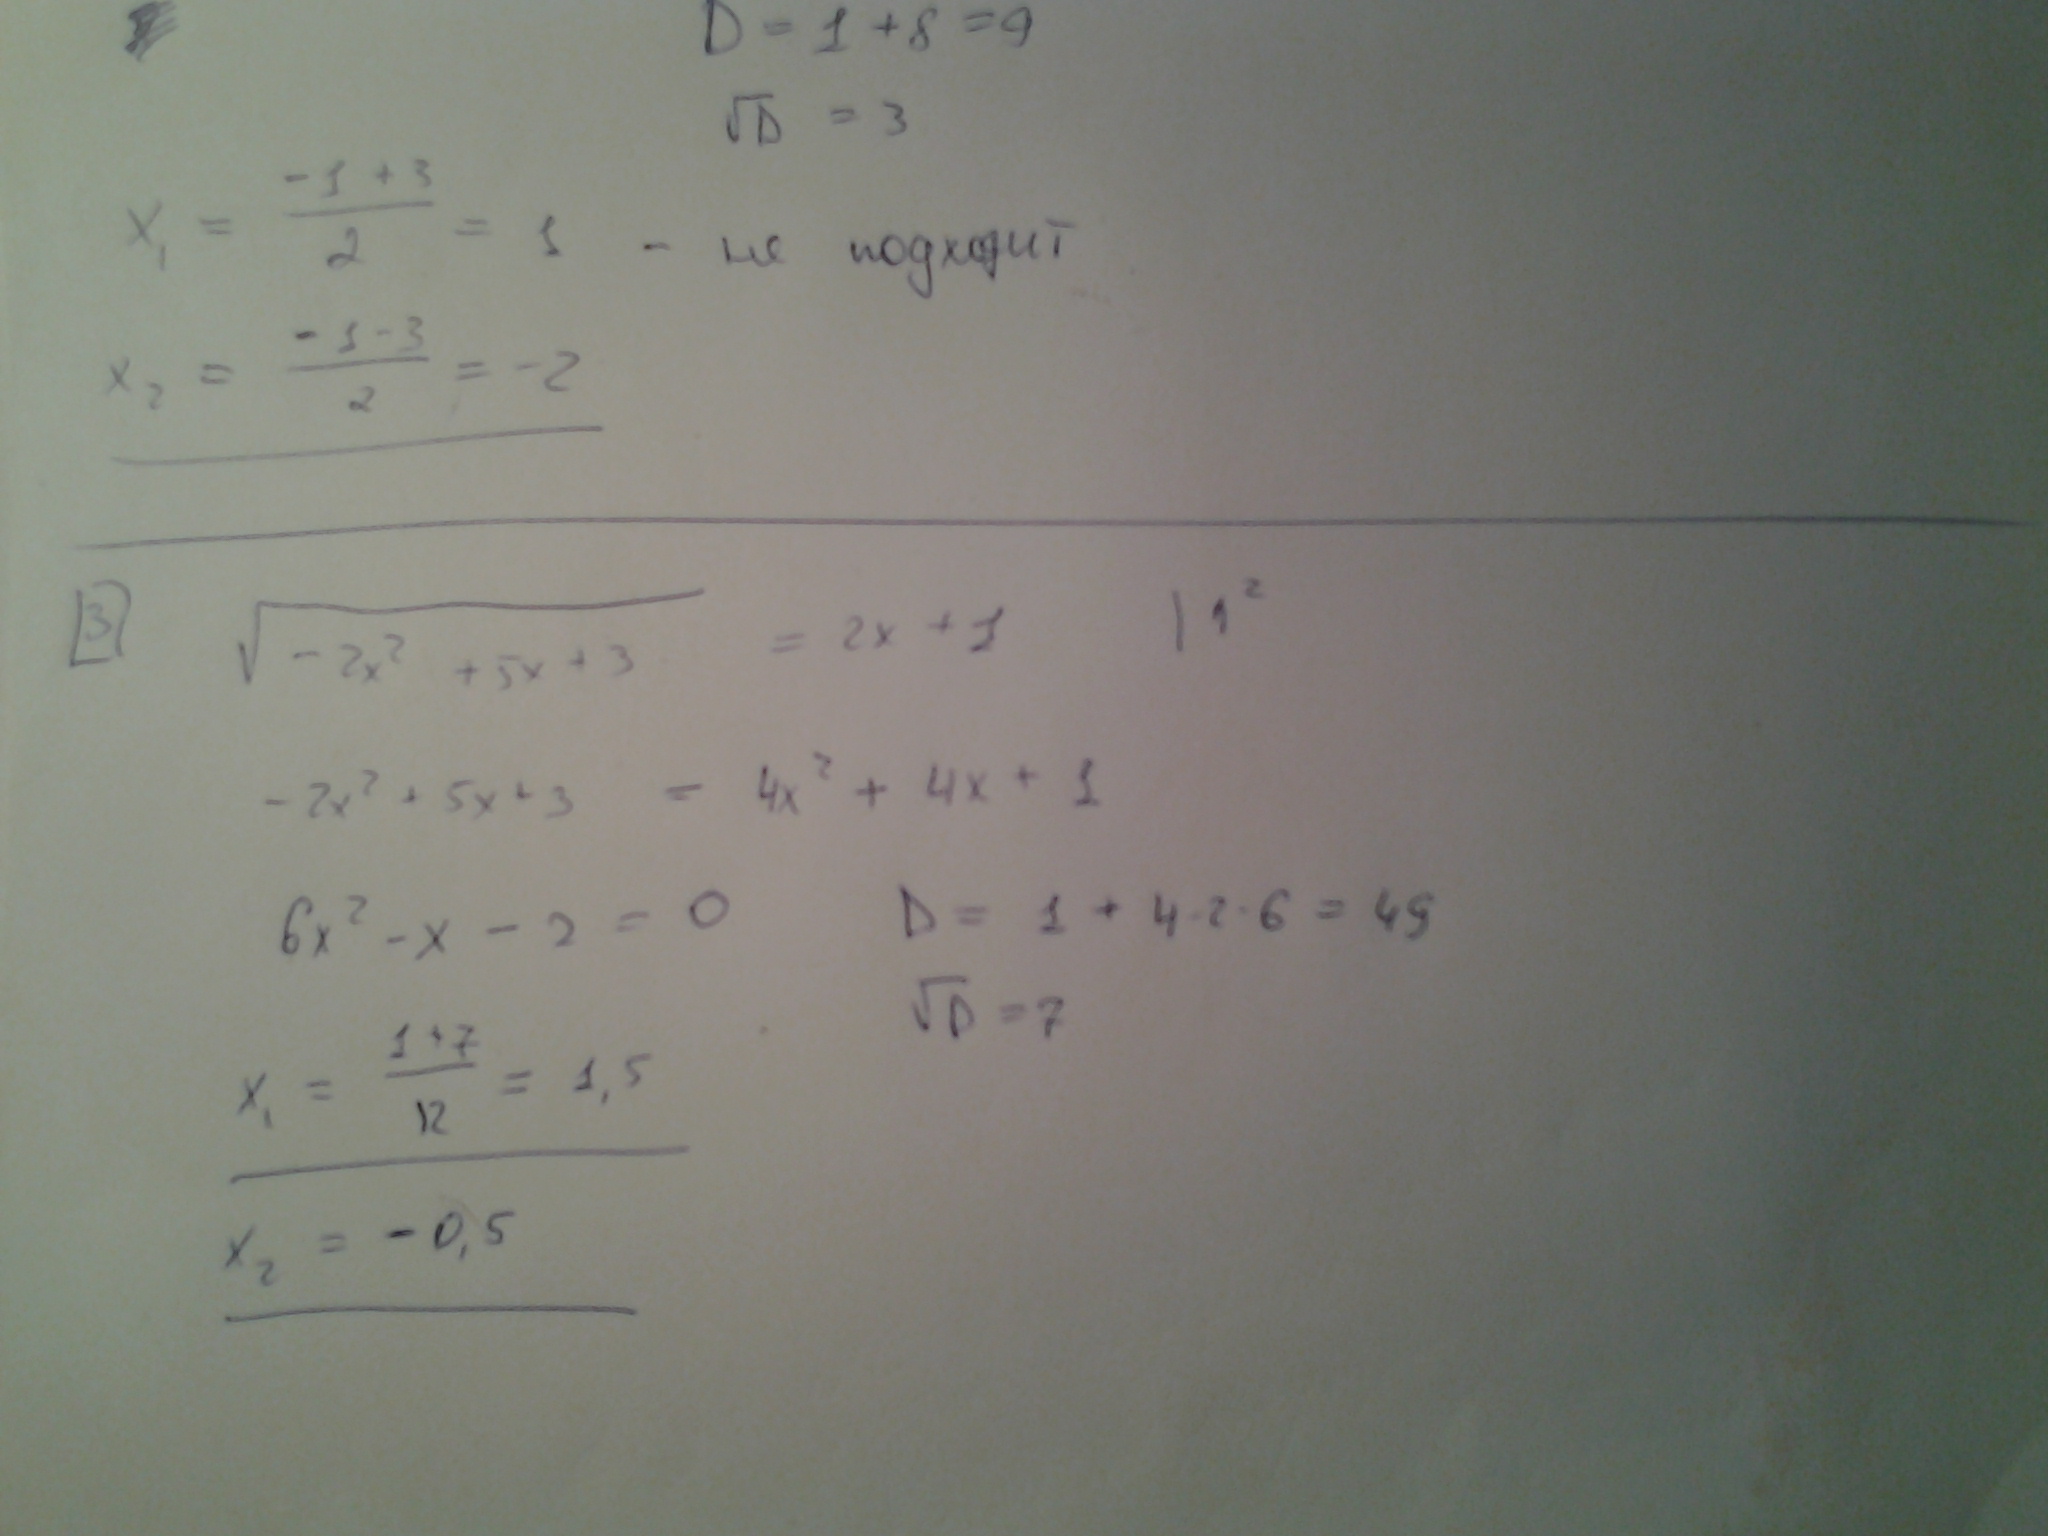 D = 1 + 8 = 9
√D = 3
x₁ = (-1 + 3)/2 = 1 - не подходит
x₂ = (-1 - 3)/2 = -2
[3] √(-2x² + 5x + 3) = 2x + 1 |↑²
-2x² + 5x + 3 = 4x² + 4x + 1
6x² - x - 2 = 0 D = 1 + 4·2·6 = 49
√D = 7
x₁ = (1 + 7)/12 = 1,5
x₂ = -0,5